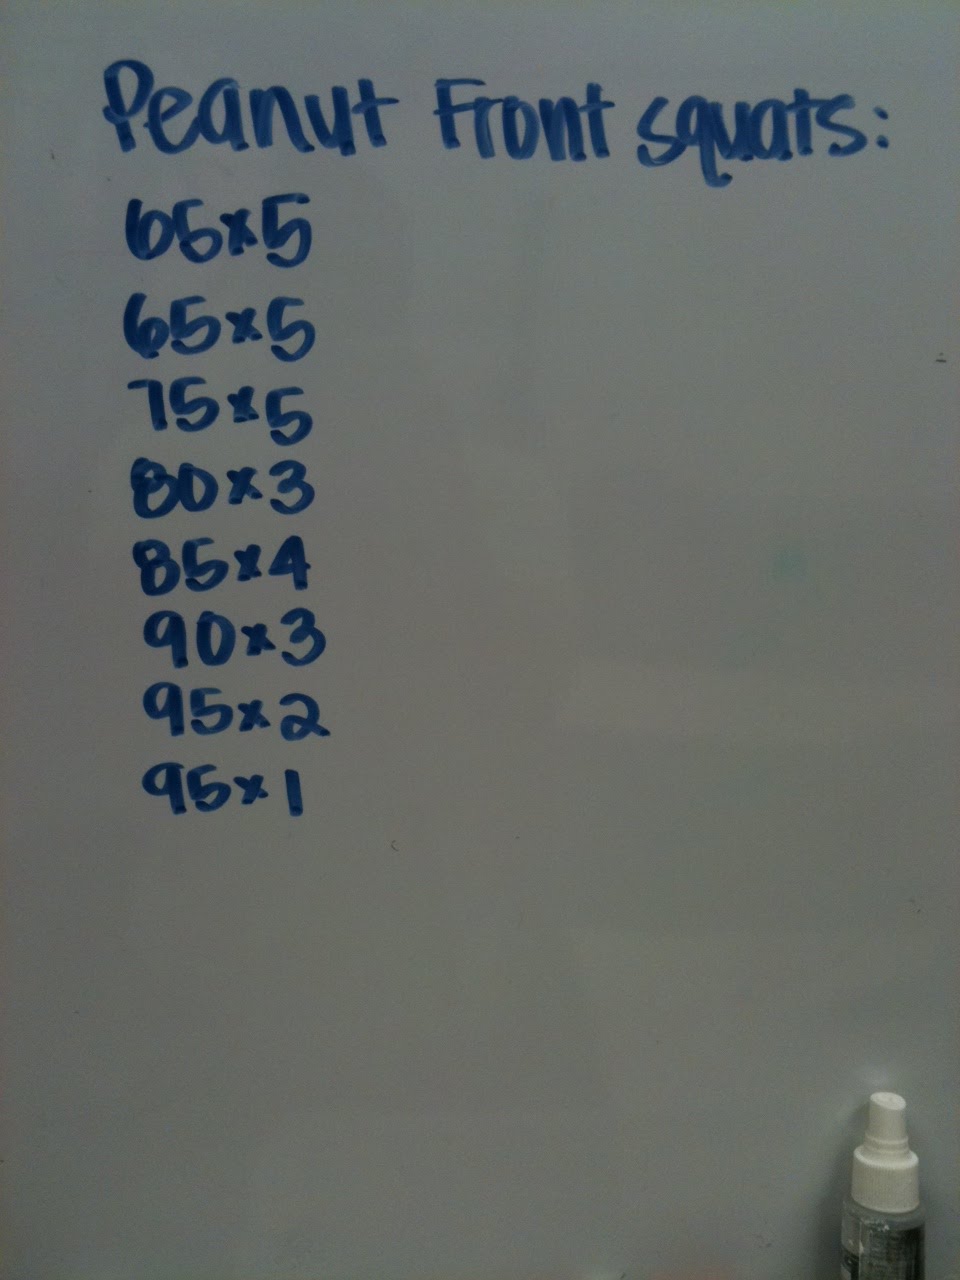 Peanut Front squats:
65x5
65x5
75x5
80x3
85x4
90x3
95x2
95x1